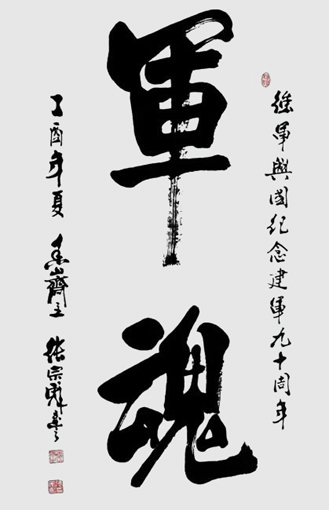 強軍興國紀念建軍九十周年
軍魂
丁酉年夏 齋主 宗 書